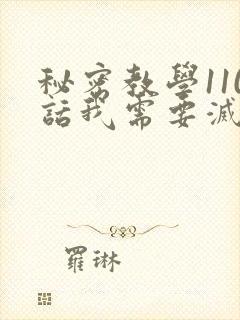 秘密教學110
話我需要滅
羅琳